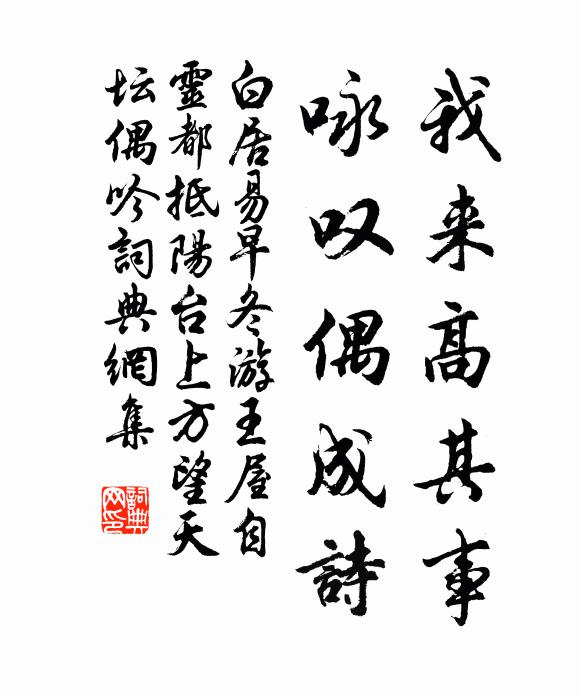 我来高其事
咏叹偶成詩
白居易早冬游王屋自
靈都抵陽台上方望天
坛偶吟詞典網集
詞典网印